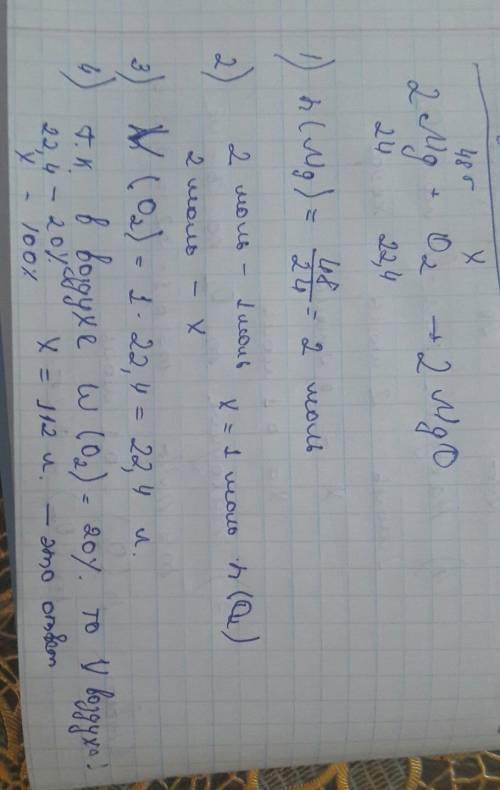 48 г x
2 Mg + O2 → 2 MgO
24 22,4
1) n(Mg) = 48/24 = 2 моль
2) 2 моль - 1 моль x = 1 моль n(O2)
2 моль - x
3) V(O2) = 1 · 22,4 = 22,4 л.
4) т.к. в воздухе W(O2) = 20%. то V воздуха:
22,4 - 20%
x - 100% x = 112 л. - это ответ